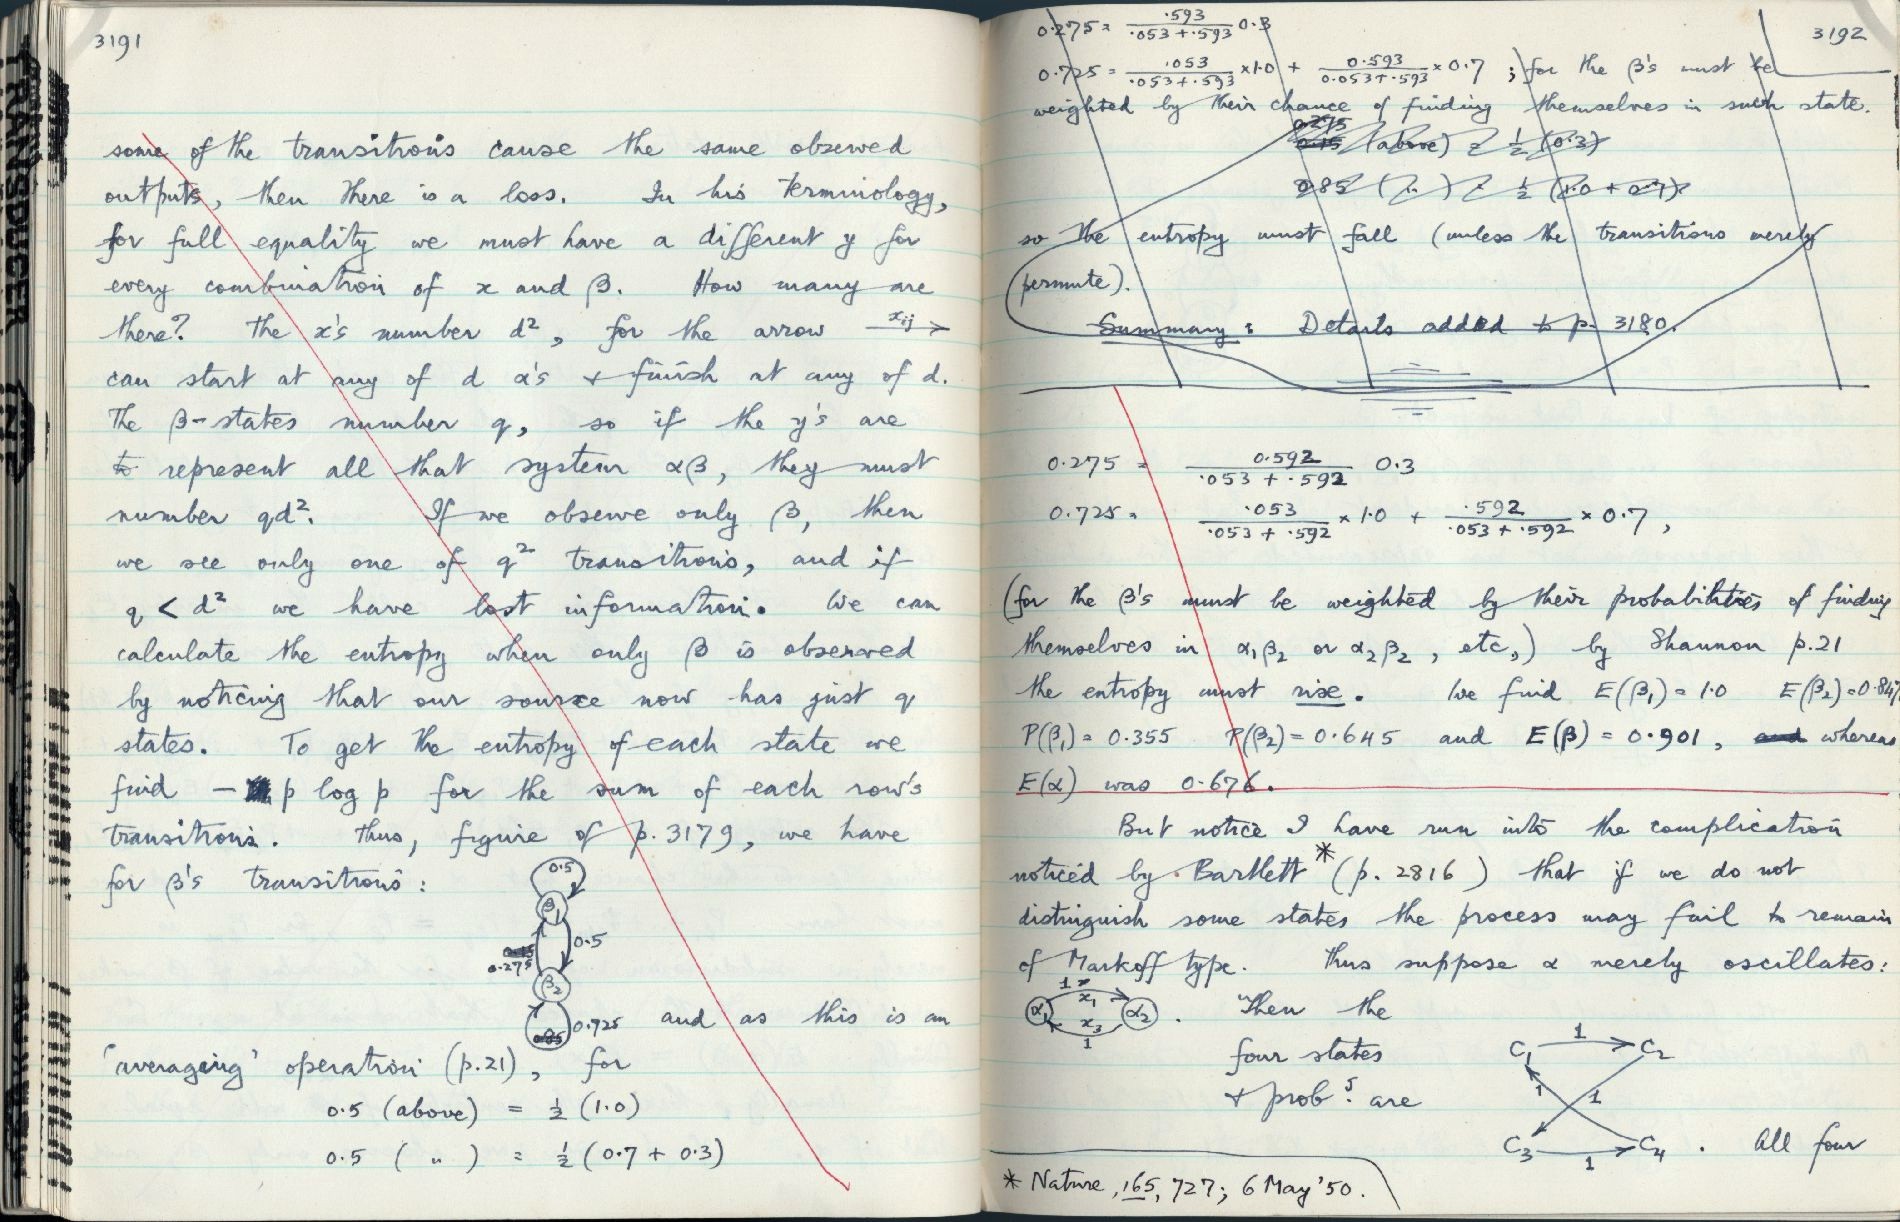 3191
some of the transitions cause the same observed
outputs, then there is a loss. In his terminology,
for full equality we must have a different y for
every combination of x and β. How many are
there? The x's number d², for the arrow xij→
can start at any of d α's & finish at any of d.
The β-states number q, so if the y's are
to represent all that system αβ, they must
number qd². If we observe only β, then
we see only one of q² transitions, and if
q < d² we have lost information. We can
calculate the entropy when only β is observed
by noticing that our source now has just q
states. To get the entropy of each state we
find – p log p for the sum of each row's
transitions. Thus, figure of p. 3179, we have
for β's transitions:
0.5
β1
0.5
0.275
β2
0.85 0.725 and as this is an
'averaging' operation (p.21), for
0.5 (above) = ½ (1.0)
0.5 ( " ) = ½ (0.7 + 0.3)
3192
0.275 = .593 / .053 + .593 0.3
0.725 = .053 / .053 + .593 × 1.0 + 0.593 / 0.053 + .593 × 0.7 ; for the β's must be
weighted by their chance of finding themselves in such state.
0.275
0.15 (above) = ½ (0.3)
0.85 ( " ) = ½ (1.0 + 0.7)
so the entropy must fall (unless the transitions merely
permute).
Summary: Details added to p. 3180.
0.275 = 0.592 / .053 + .592 0.3
0.725 = .053 / .053 + .592 × 1.0 + .592 / .053 + .592 × 0.7,
(for the β's must be weighted by their probabilities of finding
themselves in α1β2 or α2β2, etc,) by Shannon p.21
the entropy must rise. We find E(β1) = 1.0 E(β2) = 0.847
P(β1) = 0.355 P(β2) = 0.645 and E(β) = 0.901, and whereas
E(α) was 0.676.
But notice I have run into the complication
noticed by Bartlett* (p. 2816) that if we do not
distinguish some states the process may fail to remain
of Markoff type. Thus suppose α merely oscillates:
1
α1 x1 α2 . Then the
x3
1
four states
& probs. are
C1 1 C2
1 1
C3 1 C4 . All four
* Nature, 165, 727; 6 May '50.